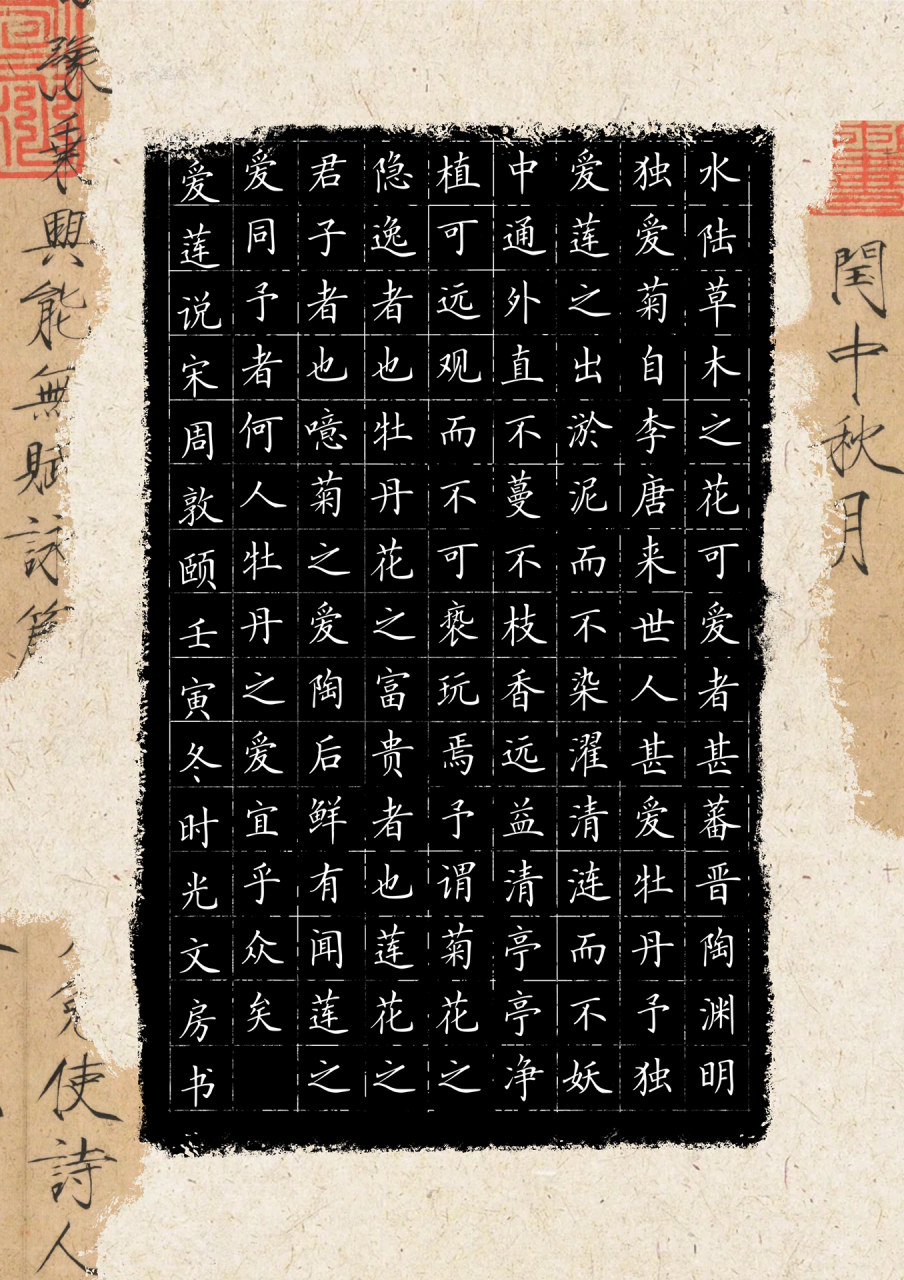 水陆草木之花可爱者甚蕃晋陶渊明
独爱菊自李唐来世人甚爱牡丹予独
爱莲之出淤泥而不染濯清涟而不妖
中通外直不蔓不枝香远益清亭亭净
植可远观而不可亵玩焉予谓菊花之
隐逸者也牡丹花之富贵者也莲花之
君子者也噫菊之爱陶后鲜有闻莲之
爱同予者何人牡丹之爱宜乎众矣
爱莲说宋周敦颐壬寅冬时光文房书
閏中秋月
乗興能無賦詠篇
使詩人